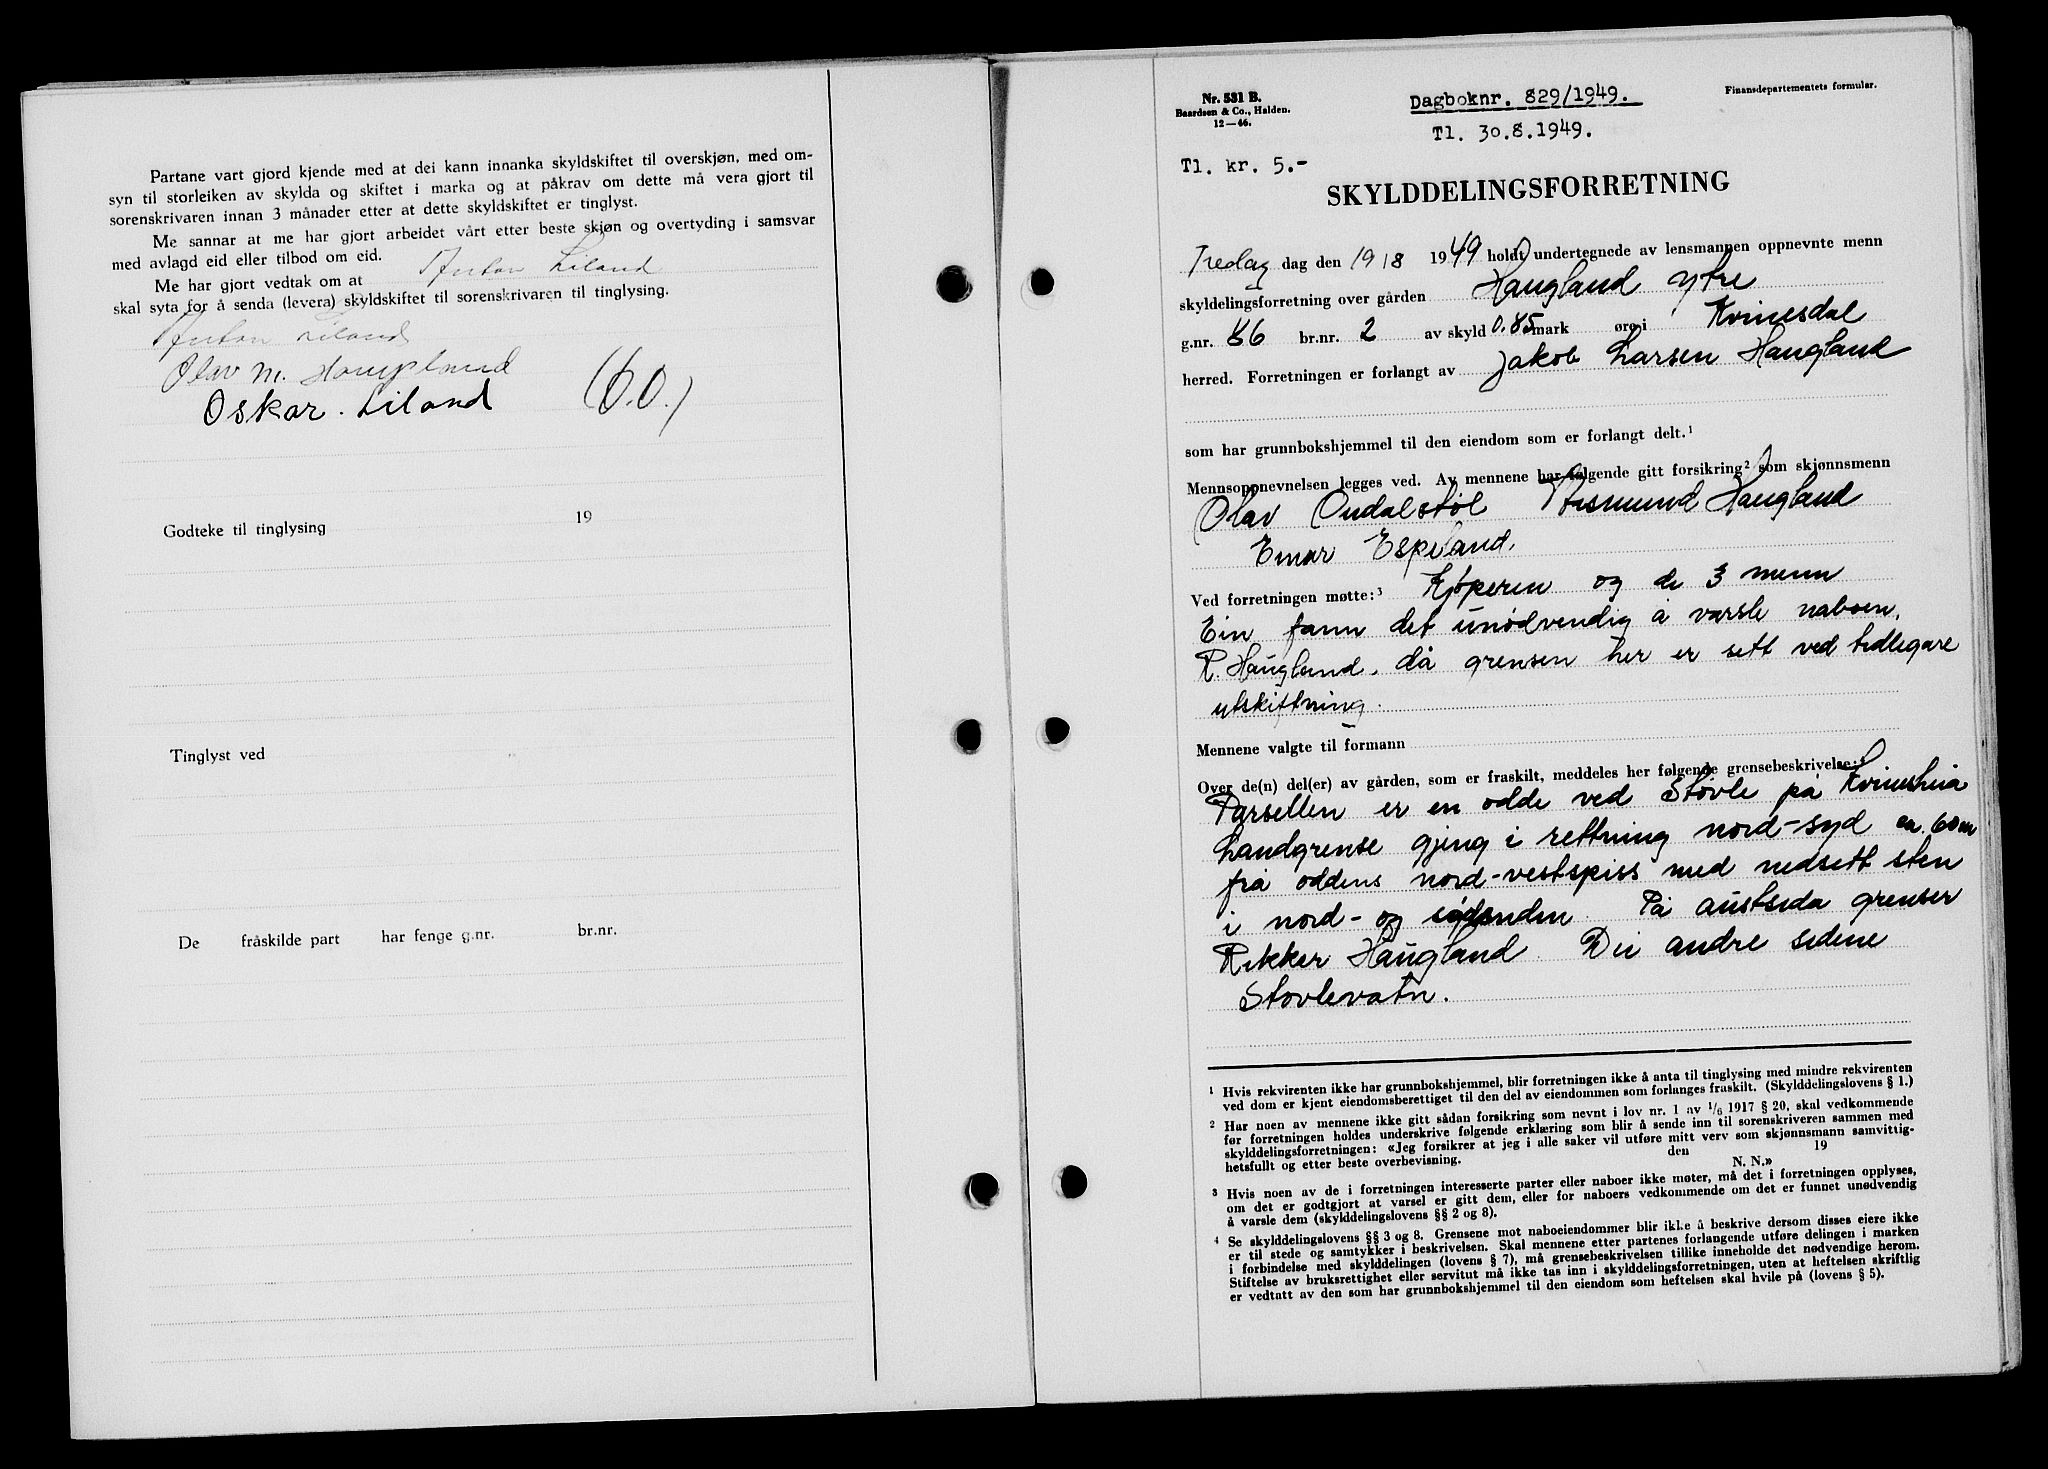 Partane vart gjord kjende med at dei kann innanka skyldskiftet til overskjøn, med om-
syn til storleiken av skylda og skiftet i marka og at påkrav om dette må vera gjort til
sorenskrivaren innan 3 månader etter at dette skyldskiftet er tinglyst.
Me sannar at me har gjort arbeidet vårt etter beste skjøn og overtyding i samsvar
med avlagd eid eller tilbod om eid.
Me har gjort vedtak om at Anton Liland
skal syta for å senda (levera) skyldskiftet til sorenskrivaren til tinglysing.
Anton Liland
Olav M. Haugland
Oskar Liland
Godteke til tinglysing 19
Tinglyst ved
De fråskilde part har fenge g.nr. br.nr.
Nr. 531 B.
Baardsen & Co., Halden.
12—46.
Dagboknr. 829/1949.
Tl. 30.8.1949.
Finansdepartementets formular.
Tl. kr. 5.-
SKYLDDELINGSFORRETNING
Fredag dag den 19/8 1949 holdt undertegnede av lensmannen oppnevnte menn
skyldelingsforretning over gården Haugland ytre
g.nr. 86 br.nr. 2 av skyld 0.85 mark øre i Kvinesdal
herred. Forretningen er forlangt av Jakob Larsen Haugland
som har grunnbokshjemmel til den eiendom som er forlangt delt.¹
Mennsoppnevnelsen legges ved. Av mennene har følgende gitt forsikring² som skjønnsmenn
Olav Omdalstøl Asmund Haugland
Einar Espeland.
Ved forretningen møtte:³ Kjøperen og de 3 menn
Ein fann det unødvendig å varsle naboen,
R. Haugland, då grensen her er sett ved tidlegare
utskiftning.
Mennene valgte til formann
Over de(n) del(er) av gården, som er fraskilt, meddeles her følgende grensebeskrivelse:⁴
Parsellen er en odde ved Støvle på Kvinesheia
Landgrense gjeng i rettning nord-syd ca. 60 m
frå oddens nord-vestspiss med nedsett sten
i nord- og sødenden. På austsida grenser
Rikker Haugland Dei andre sidene
Støvlevatn.
¹ Hvis rekvirenten ikke har grunnbokshjemmel, blir forretningen ikke å anta til tinglysing med mindre rekvirenten
ved dom er kjent eiendomsberettiget til den del av eiendommen som forlanges fraskilt. (Skylddelingslovens § 1.)
² Har noen av mennene ikke gitt sådan forsikring som nevnt i lov nr. 1 av 1/6 1917 § 20, skal vedkommende
før forretningen holdes underskrive følgende erklæring som blir å sende inn til sorenskriveren sammen med
skylddelingsforretningen: «Jeg forsikrer at jeg i alle saker vil utføre mitt verv som skjønnsmann samvittig-
hetsfullt og etter beste overbevisning. den 19
N. N.»
³ Hvis noen av de i forretningen interesserte parter eller naboer ikke møter, må det i forretningen opplyses,
om det er godtgjort at varsel er gitt dem, eller for naboers vedkommende om det er funnet unødvendig
å varsle dem (skylddelingslovens §§ 2 og 8).
⁴ Se skylddelingslovens §§ 3 og 8. Grensene mot naboeiendommer blir ikke å beskrive dersom disses eiere ikke
er til stede og samtykker i beskrivelsen. Skal mennene etter partenes forlangende utføre delingen i marken
i forbindelse med skylddelingen (lovens § 7), må grensebeskrivelsen tillike inneholde det nødvendige herom.
Stiftelse av bruksrettighet eller servitut må ikke tas inn i skylddelingsforretningen, uten at heftelsen skriftlig
er vedtatt av den som har grunnbokshjemmel til den eiendom som heftelsen skal hvile på (lovens § 5).